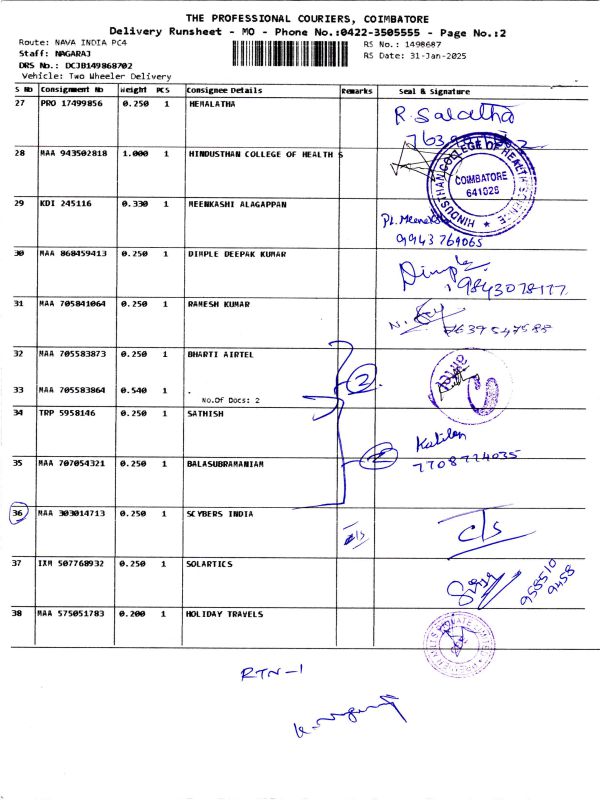 THE PROFESSIONAL COURIERS, COIMBATORE
Delivery Runsheet - MO - Phone No.:0422-3505555 - Page No.:2
Route: NAVA INDIA PC4
RS No.: 1498687
Staff: NAGARAJ
RS Date: 31-Jan-2025
DRS No.: DCJB149868702
Vehicle: Two Wheeler Delivery
S No Consignment No Weight PCS Consignee Details Remarks Seal & Signature
27 PRO 17499856 0.250 1 HEMALATHA
28 MAA 943502818 1.000 1 HINDUSTHAN COLLEGE OF HEALTH S
HINDUSTHAN COLLEGE OF HEALTH SCIENCE
COIMBATORE
641028
29 KDI 245116 0.330 1 MEENKASHI ALAGAPPAN
9943769065
30 MAA 868459413 0.250 1 DIMPLE DEEPAK KUMAR Dimple
9843078177
31 MAA 705841064 0.250 1 RAMESH KUMAR
7639547588
32 MAA 705583873 0.250 1 BHARTI AIRTEL
2
33 MAA 705583864 0.540 1 .
No.Of Docs: 2
34 TRP 5958146 0.250 1 SATHISH
35 MAA 707054321 0.250 1 BALASUBRAMANIAM
7708724035
36 MAA 303014713 0.250 1 SCYBERS INDIA c/s c/s
37 IXM 507768932 0.250 1 SOLARTICS
958510
9458
38 MAA 575051783 0.200 1 HOLIDAY TRAVELS
RTN-1